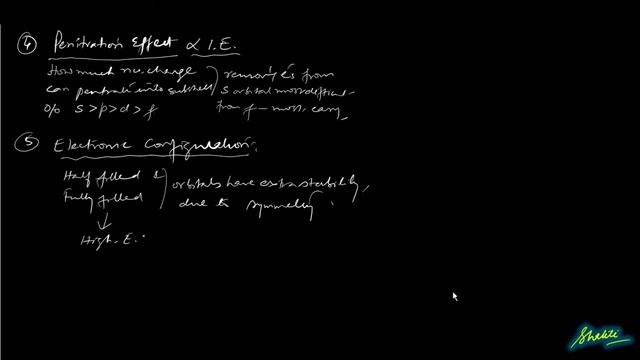 ④ Penitration Effect ∝ I.E.
How much nu. charge
can penitrate into subshell
o/o s > p > d > f
removing e's from
s orbital most difficult
from f - most. easy
⑤ Electronic Configuration:
Half filled &
Fully filled
orbitals have extra stability
due to symmetry.
↓
High. E.
Shakti